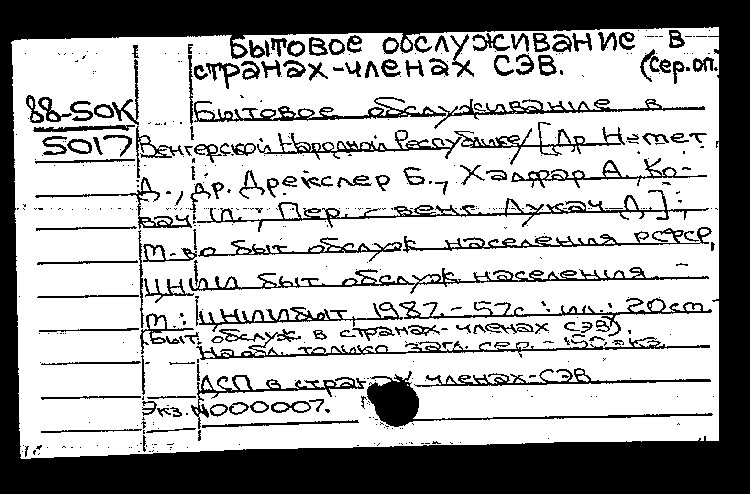 Бытовое обслуживание в
странах-членах СЭВ. (сер.оп.
88-50К Бытовое обслуживание в
5017 Венгерской Народной Республике/[Др Немет
Д., др. Дрекслер Б., Халфар А., Ко-
вач П.; Пер. с венг. Лукач Л.];
М-во быт обслуж населения РСФСР,
ЦНИИ быт. обслуж населения. -
М.: ЦНИИбыт, 1987.-57с : ил.; 20см.-
(Быт обслуж. в странах-членах СЭВ).
На обл. только загл. сер. - 150экз
ДСП в странах членах-СЭВ
Экз.N000007.